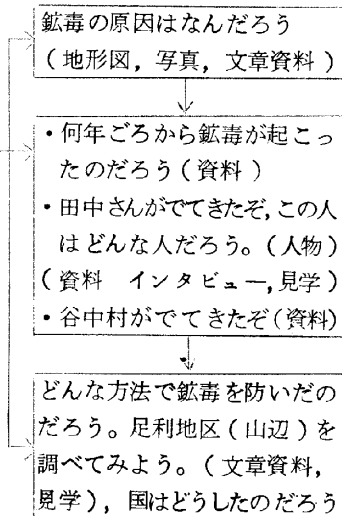 鉱毒の原因はなんだろう
(地形図,写真,文章資料)
・何年ごろから鉱毒が起こっ
たのだろう(資料)
・田中さんがでてきたぞ,この人
はどんな人だろう。(人物)
(資料 インタビュー,見学)
・谷中村がでてきたぞ(資料)
どんな方法で鉱毒を防いだの
だろう。足利地区(山辺)を
調べてみよう。(文章資料,
見学),国はどうしたのだろう